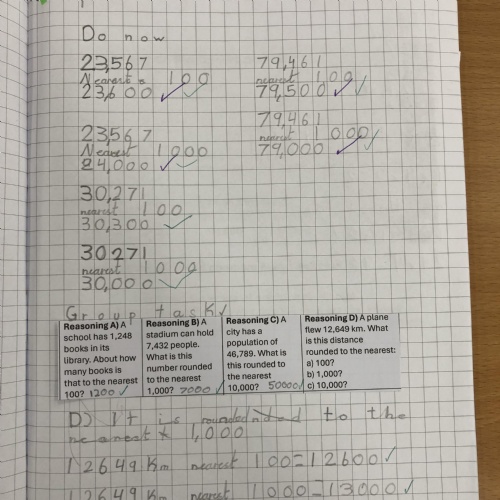 Do now
23,567
Nearest 100
23,600
23,567
Nearest 1000
24,000
30,271
nearest 100
30,300
30271
nearest 1000
30,000
79,461
nearest 100
79,500
79,461
nearest 1000
79,000
Group task
Reasoning A) A
school has 1,248
books in its
library. About how
many books is
that to the nearest
100? 1200
Reasoning B) A
stadium can hold
7,432 people.
What is this
number rounded
to the nearest
1,000? 7000
Reasoning C) A
city has a
population of
46,789. What is
this rounded to
the nearest
10,000? 50000
Reasoning D) A plane
flew 12,649 km. What
is this distance
rounded to the nearest:
a) 100?
b) 1,000?
c) 10,000?
D) It is rounded to the
nearest 1,000
12649 Km nearest 100=12600
12649 Km nearest 1000=13000